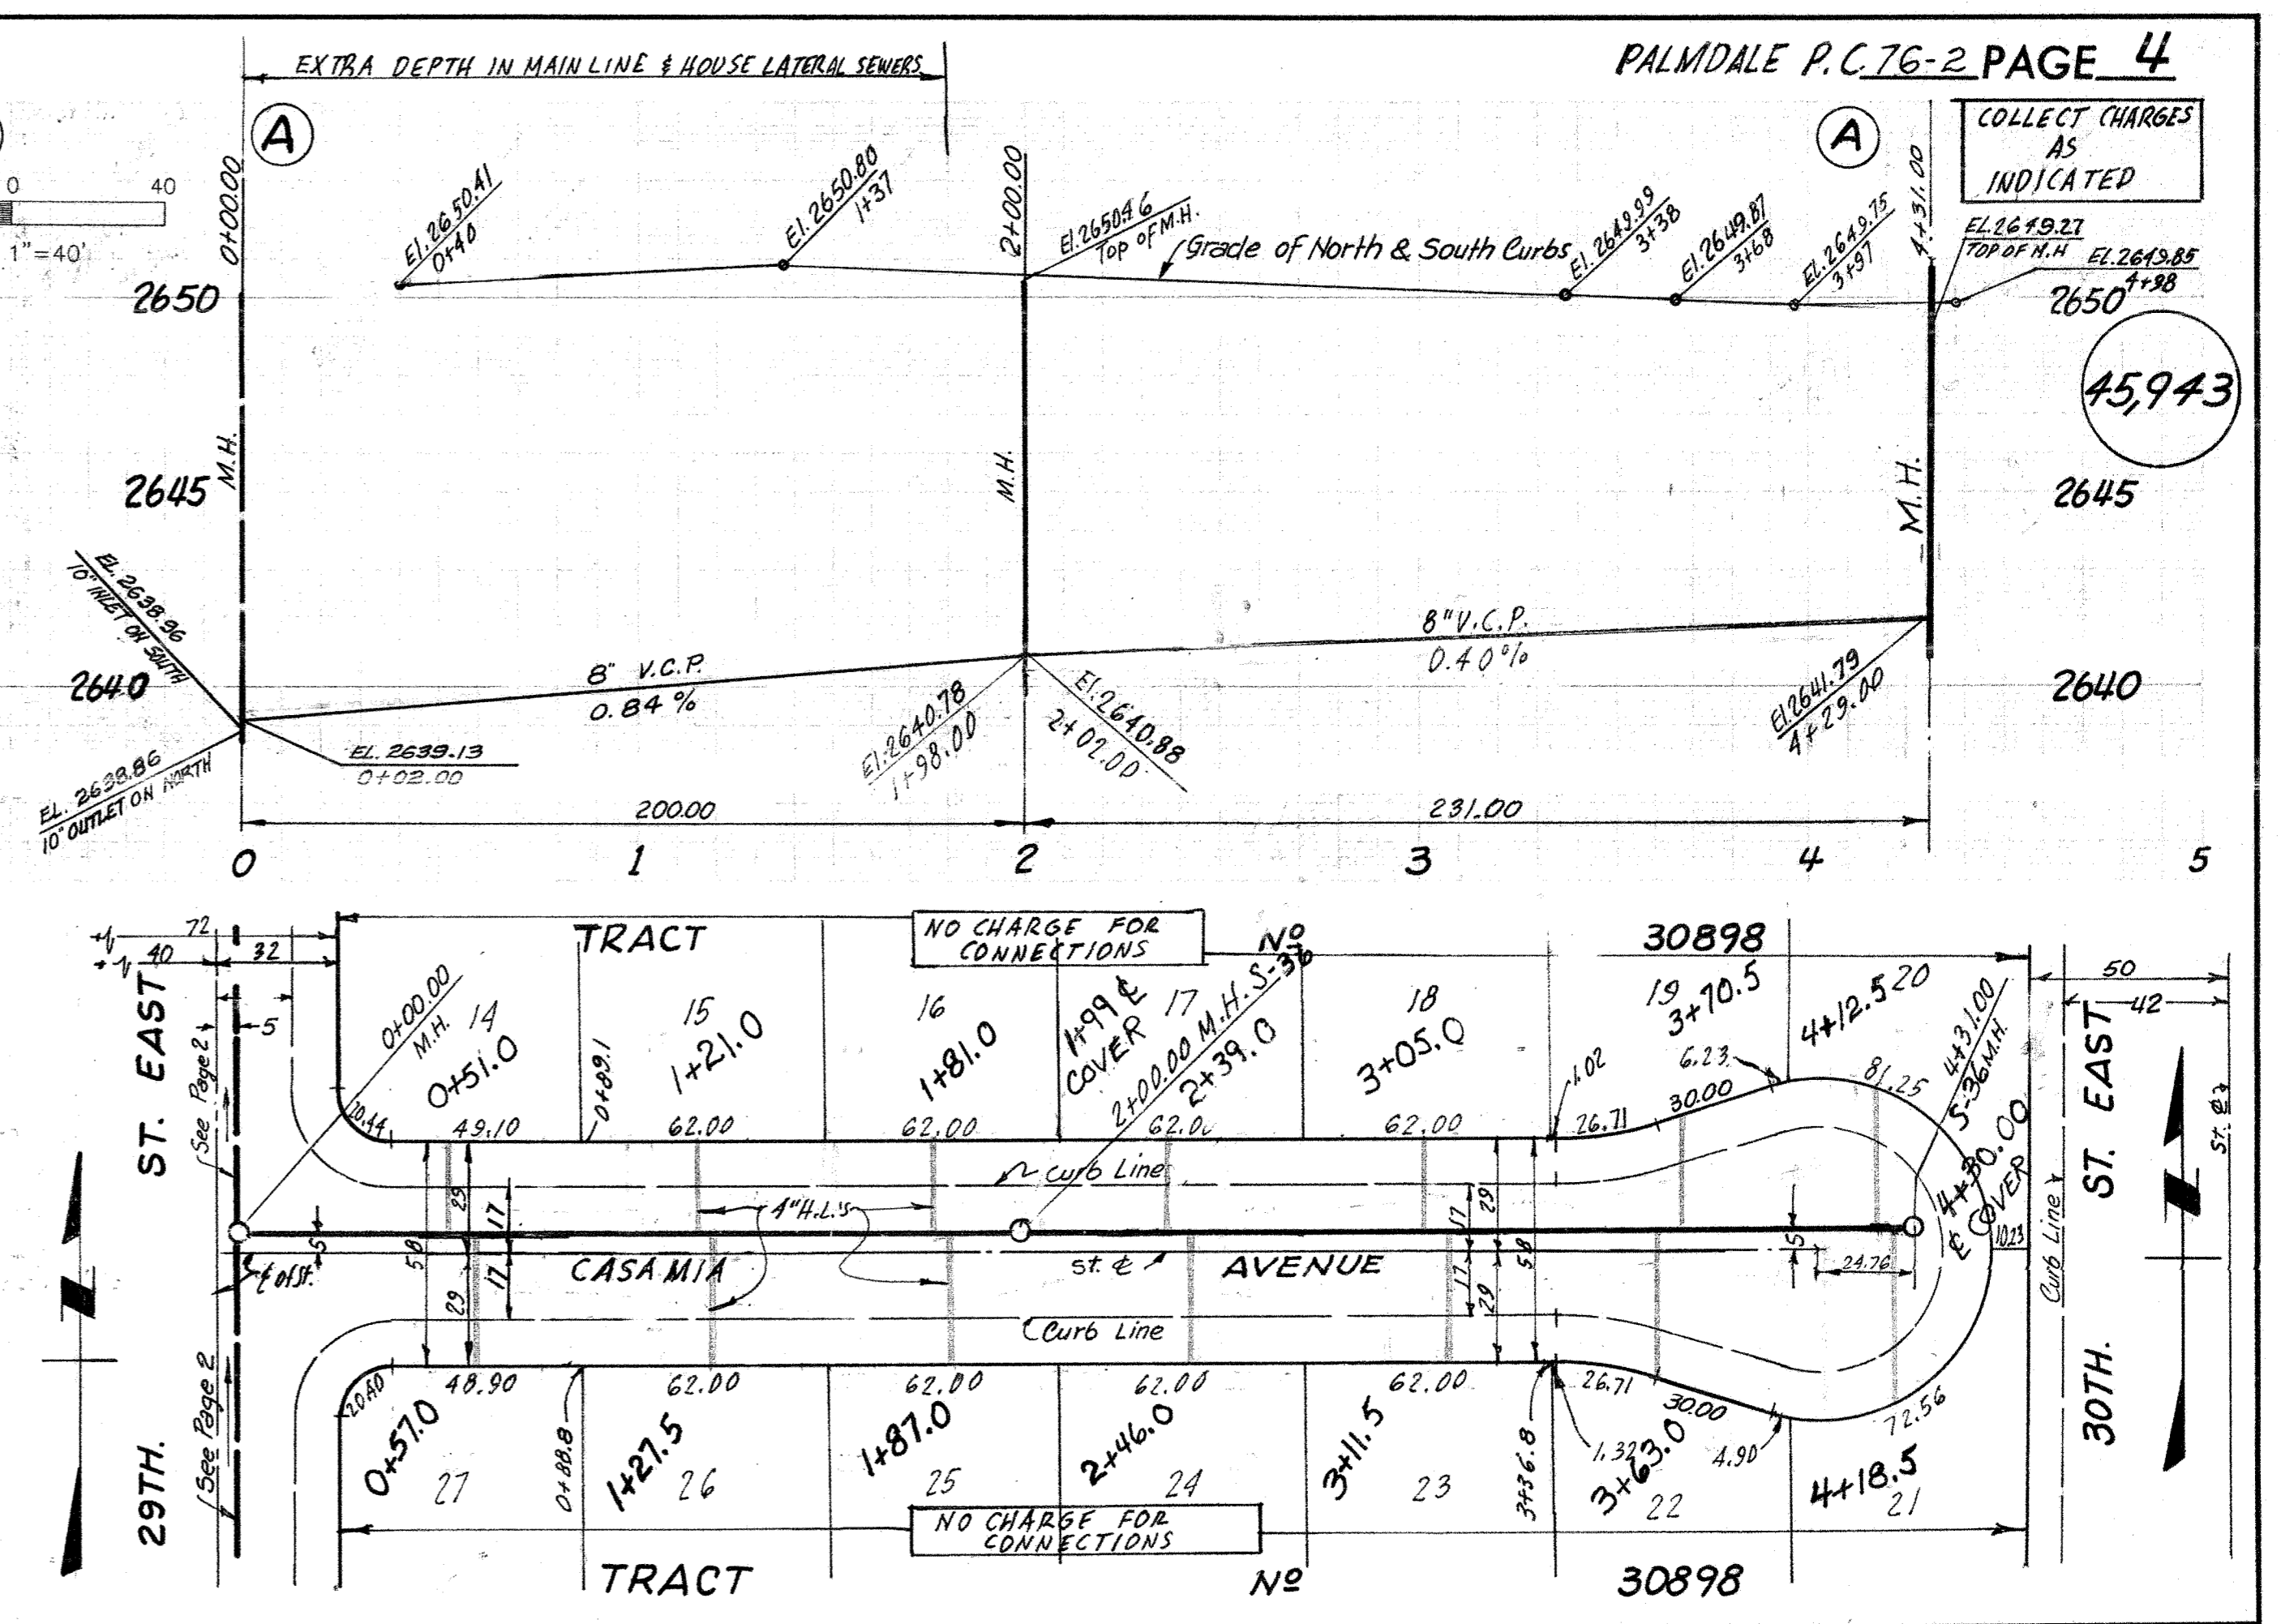 PALMDALE P.C. 76-2 PAGE 4
EXTRA DEPTH IN MAIN LINE & HOUSE LATERAL SEWERS
COLLECT CHARGES
AS
INDICATED
A
A
0 40
1"=40'
0+00.00
El. 2650.41
0+40
El. 2650.80
1+37
2+00.00
El. 2650.46
TOP OF M.H.
Grade of North & South Curbs
El. 2649.99
3+38
El. 2649.87
3+68
El. 2649.75
3+97
4+31.00
EL 2649.27
TOP OF M.H
EL. 2649.85
4+98
2650
2650
45,943
M.H.
M.H.
M.H.
2645
2645
EL. 2638.96
10" INLET ON SOUTH
2640
2640
8" V.C.P.
0.84%
8" V.C.P.
0.40%
EL. 2639.13
0+02.00
EL. 2638.86
10" OUTLET ON NORTH
El. 2640.78
1+98.00
El. 2640.88
2+02.00
El. 2641.79
4+29.00
200.00
231.00
0 1 2 3 4 5
72
40
32
5
TRACT
NO CHARGE FOR
CONNECTIONS
Nº
30898
50
42
ST. EAST
See Page 2
0+00.00
M.H.
14
0+51.0
0+89.1
15
1+21.0
16
1+81.0
1+99 ℄
COVER
17
2+00.00 M.H. S-36
2+39.0
18
3+05.0
19
3+70.5
20
4+12.5
4+31.00
S-36 M.H.
4+30.00
℄ COVER
ST. EAST
St. ℄
20.44
49.10
62.00
62.00
62.00
62.00
1.02
26.71
30.00
6.23
81.25
Curb Line
29
17
4" H.L.'s
17
29
58
5
℄ of St.
CASA MIA
St. ℄
AVENUE
58
5
24.76
10.23
Curb Line
17
29
17
29
Curb Line
20.40
48.90
62.00
62.00
62.00
62.00
26.71
30.00
72.56
1.32
4.90
29TH.
See Page 2
0+57.0
27
0+88.8
1+27.5
26
1+87.0
25
2+46.0
24
3+11.5
23
3+36.8
3+63.0
22
4+18.5
21
30TH.
NO CHARGE FOR
CONNECTIONS
TRACT
Nº
30898